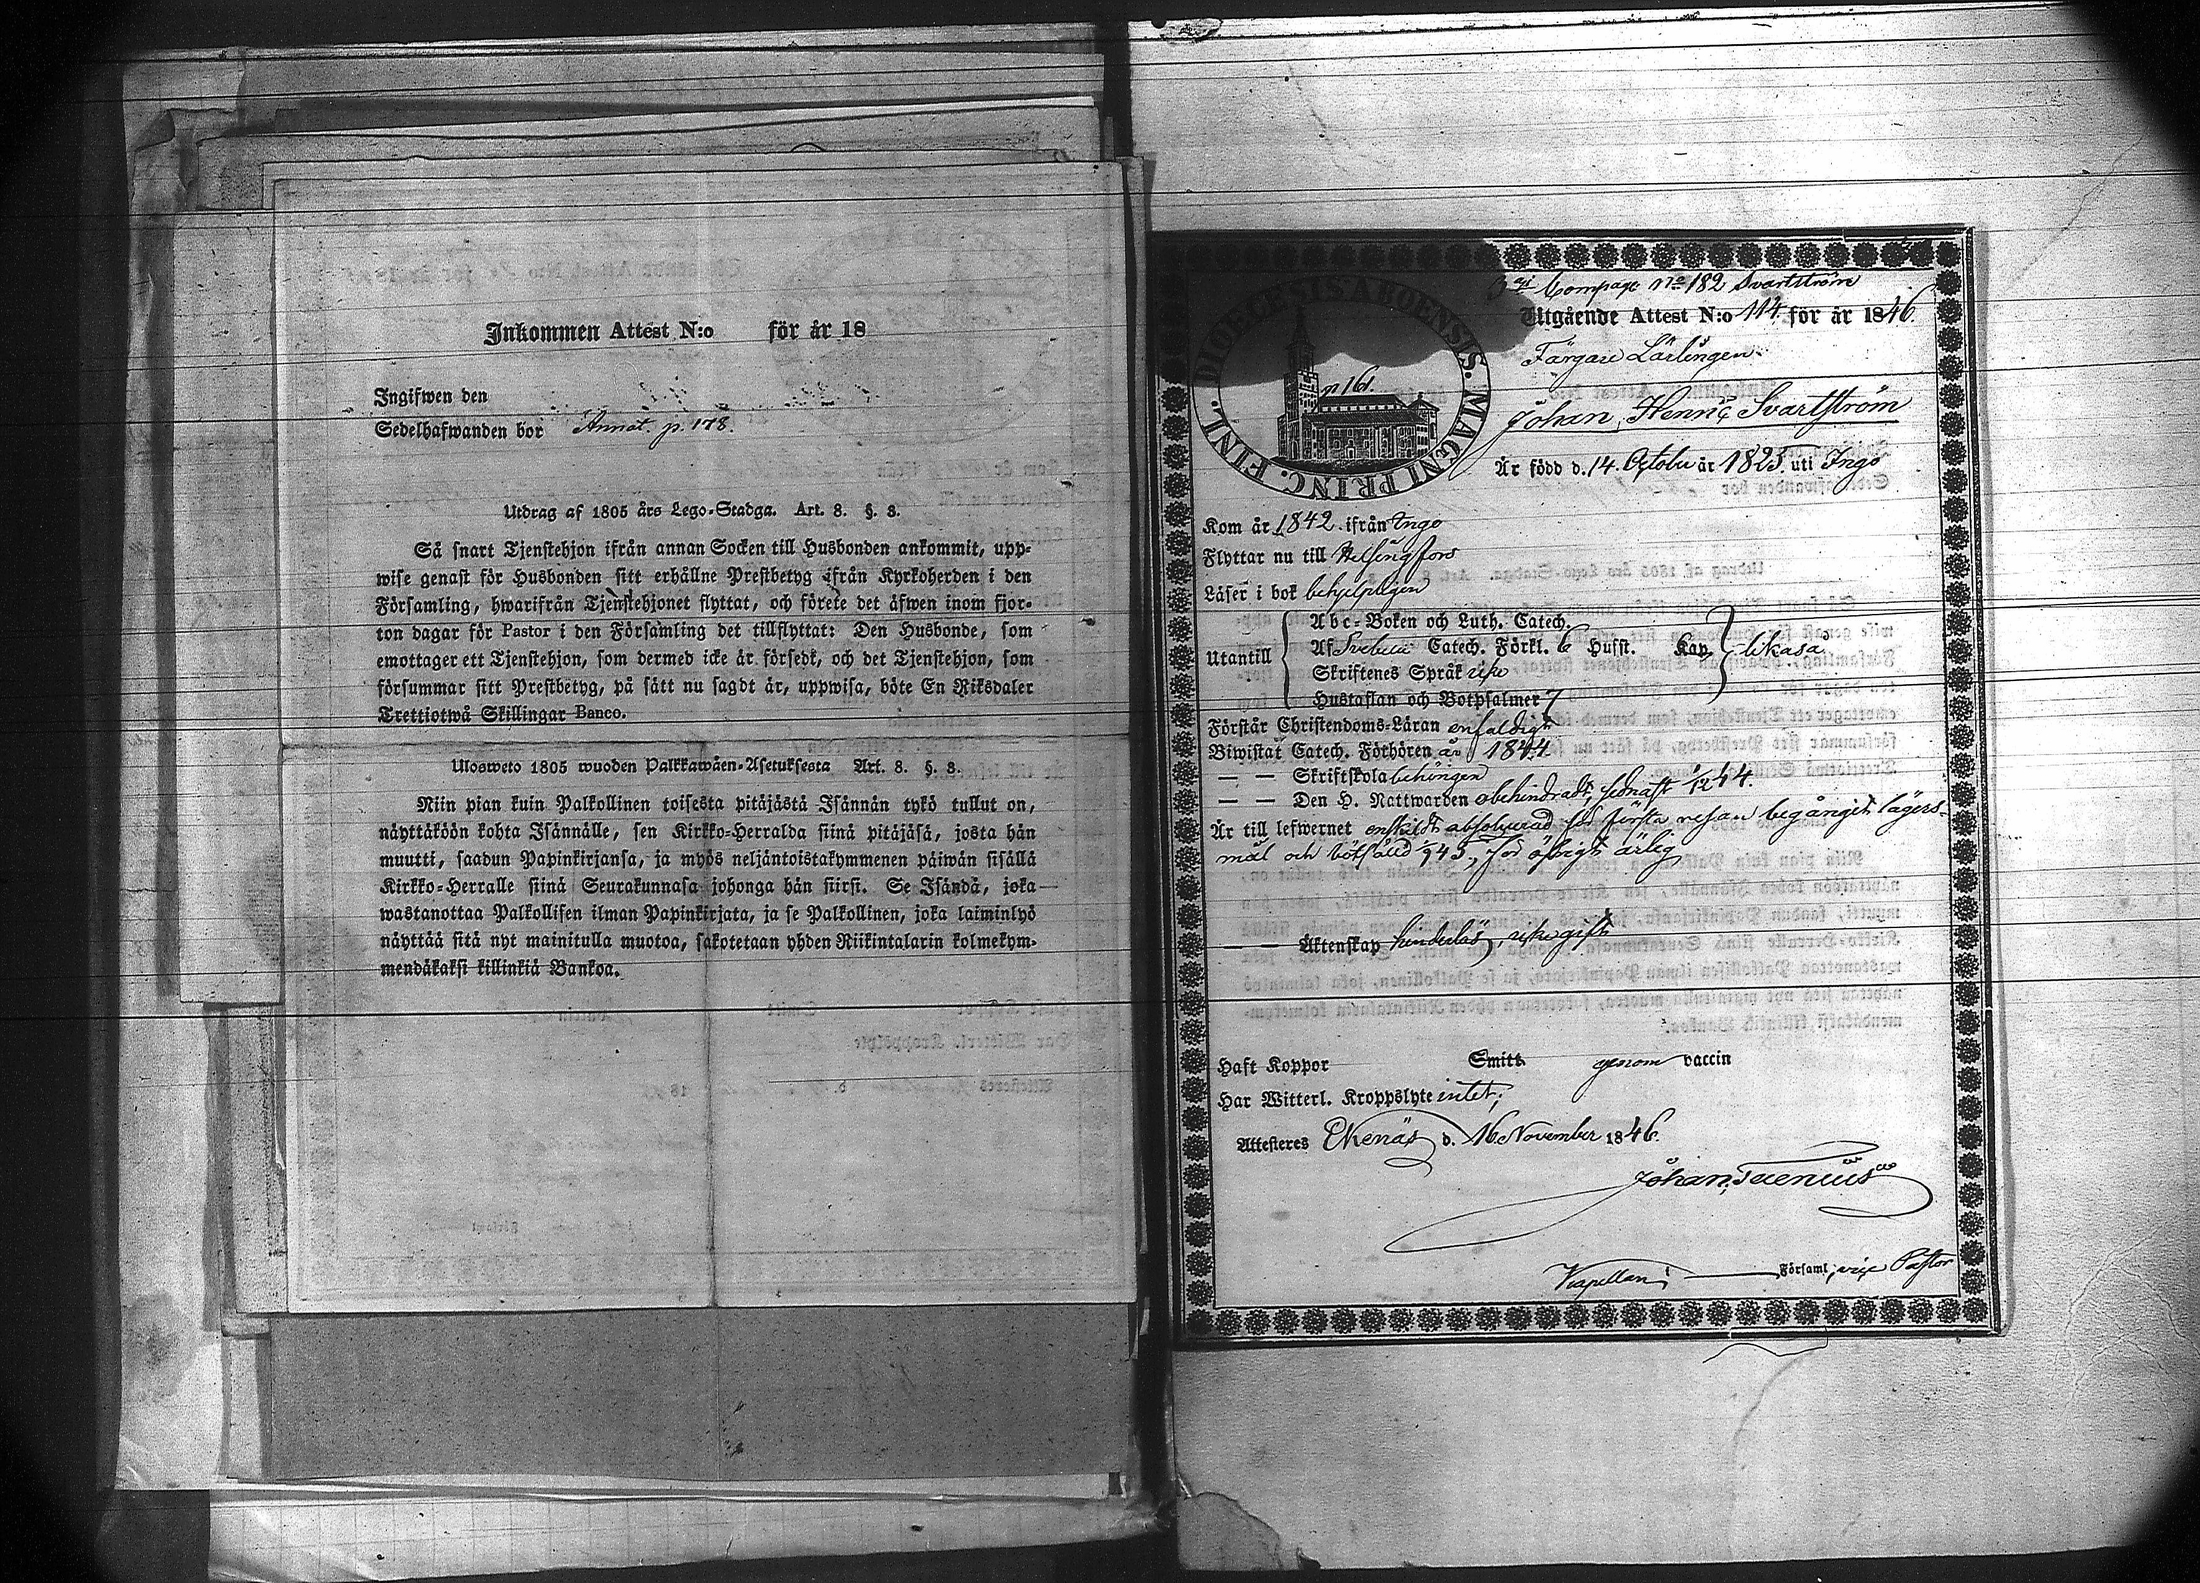 Inkommen Attest N:o för år 18
Ingifwen den
Sedelhafwanden bor Annot. p. 178.
Utdrag af 1805 års Lego-Stadga. Art. 8. §. 3.
Så snart Tjenstehjon ifrån annan Socken till Husbonden ankommit, upp-
wise genast för Husbonden sitt erhållne Prestbetyg ifrån Kyrkoherden i den
Församling, hwarifrån Tjenstehjonet flyttat, och förete det äfwen inom fjor-
ton dagar för Pastor i den Församling det tillflyttat: Den Husbonde, som
emottager ett Tjenstehjon, som dermed icke är försedt, och det Tjenstehjon, som
försummar sitt Prestbetyg, på sätt nu sagdt är, uppwisa, böte En Riksdaler
Trettiotwå Skillingar Banco.
Ulosweto 1805 wuoden Palkkawäen-Asetuksesta Art. 8. §. 3.
Niin pian kuin Palkollinen toisesta pitäjästä Isännän tykö tullut on,
näyttäköön kohta Isännälle, sen Kirkko-Herralda siinä pitäjäsä, josta hän
muutti, saadun Papinkirjansa, ja myös neljäntoistakymmenen päiwän sisällä
Kirkko-Herralle siinä Seurakunnasa johonga hän siirsi. Se Isändä, joka
wastanottaa Palkollisen ilman Papinkirjata, ja se Palkollinen, joka laiminlyö
näyttää sitä nyt mainitulla muotoa, sakotetaan yhden Riikintalarin kolmekym-
mendäkaksi killinkiä Bankoa.
Compagn. No 182 Svartström
Utgående Attest N:o 114 för år 1846.
DIOECESIS ABOENSIS. MAGNI PRINC. FINL.
p 161.
Färgare Lärlingen
Johan Henric Svartström
Är född d. 14. Octobr år 1825 uti Ingo
Kom år 1842 ifrån Ingo
Flyttar nu till Helsingfors
Läser i bok behjelpligen
Utantill
Abc-Boken och Luth. Catech.
Af Svebelii Catech. Förkl. 6 Hufst. Kap
Skriftenes Språk icke
Hustaflan och Botpsalmer 7
Förstår Christendoms-Läran enfaldigt
Biwistat Catech. Förhören år 1844
— — Skriftskola behörigen
— — Den H. Nattwarden obehindradt, sednast 1/12 44.
Är till lefwernet enskildt absolverad för första resan begånget lägers-
mål och bötfälld 1/9 45, för öfrigt ärlig
— — Äktenskap hinderslös, icke gift
Haft Koppor Smitt genom vaccin
Har Witterl. Kroppslyte intet;
Attesteres Ekenäs d. 16 November 1846.
Kapellan i Församl, vice Pastor